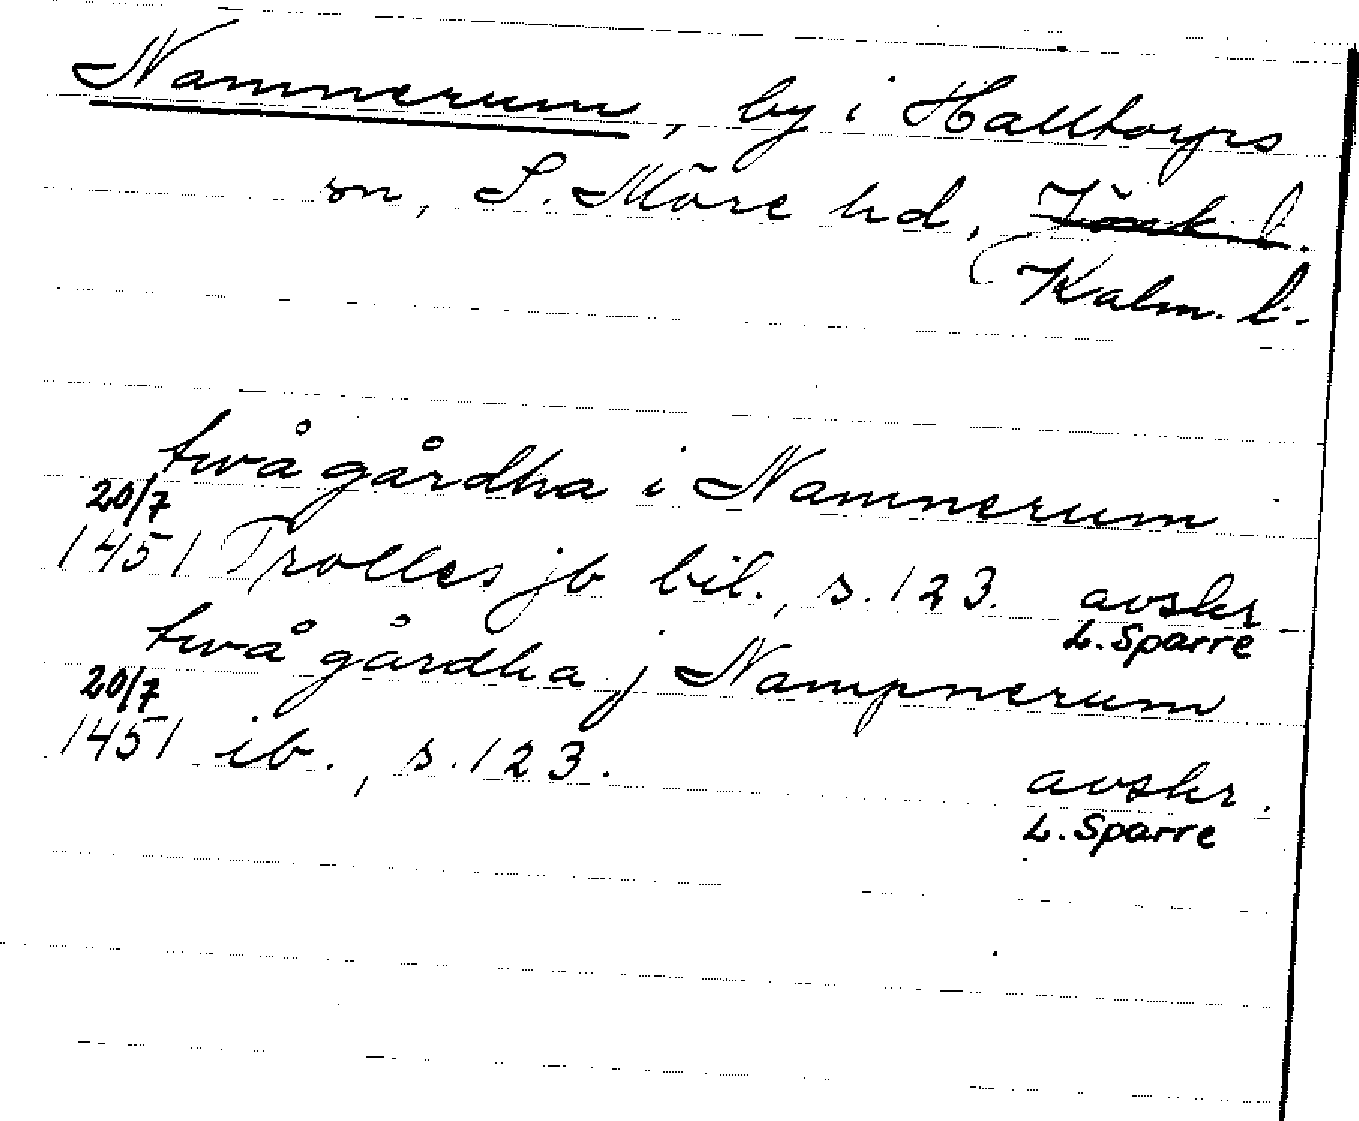 Namnerum, by i Halltorps
sn, S. Möre hd, Jönk. l.
Kalm. l.
twå gårdha i Namnerum
20/7
1451 Trolles jb bil., s. 123. avskr
L. Sparre
twå gårdha j Nampnerum
20/7
1451 ib., s. 123. avskr.
L. Sparre